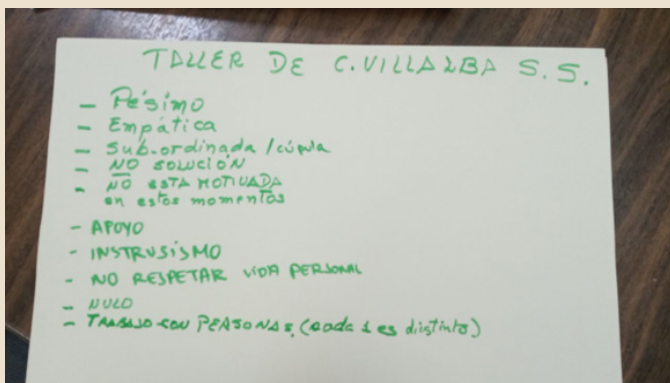 TALLER DE C.VILLALBA S.S.
- Pésimo
- Empática
- Sub-ordinada/cúpula
- NO SOLUCIÓN
- NO ESTA MOTIVADA
en estos momentos
- APOYO
- INSTRUSISMO
- NO RESPETAR VIDA PERSONAL
- NULO
- TRABAJO CON PERSONAS. (cada 1 es distinto)